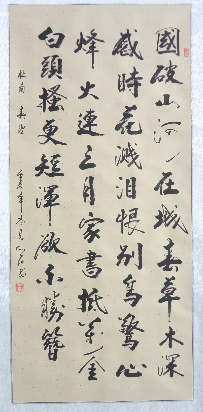 國破山河在城春草木深
感時花濺淚恨別鳥驚心
烽火連三月家書抵萬金
白頭搔更短渾欲不勝簪
杜甫 春望